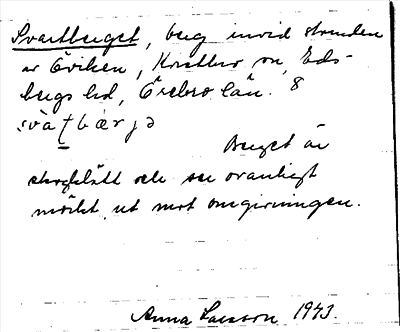 Svartberget, berg invid stranden
av Öviken, Knallbo on, Eds-
bergs hd, Örebro län. 8
svàʈbærjə
Berget är
skogklätt och ser ovanligt
mörkt ut mot omgivningen.
Anna Larsson 1943.